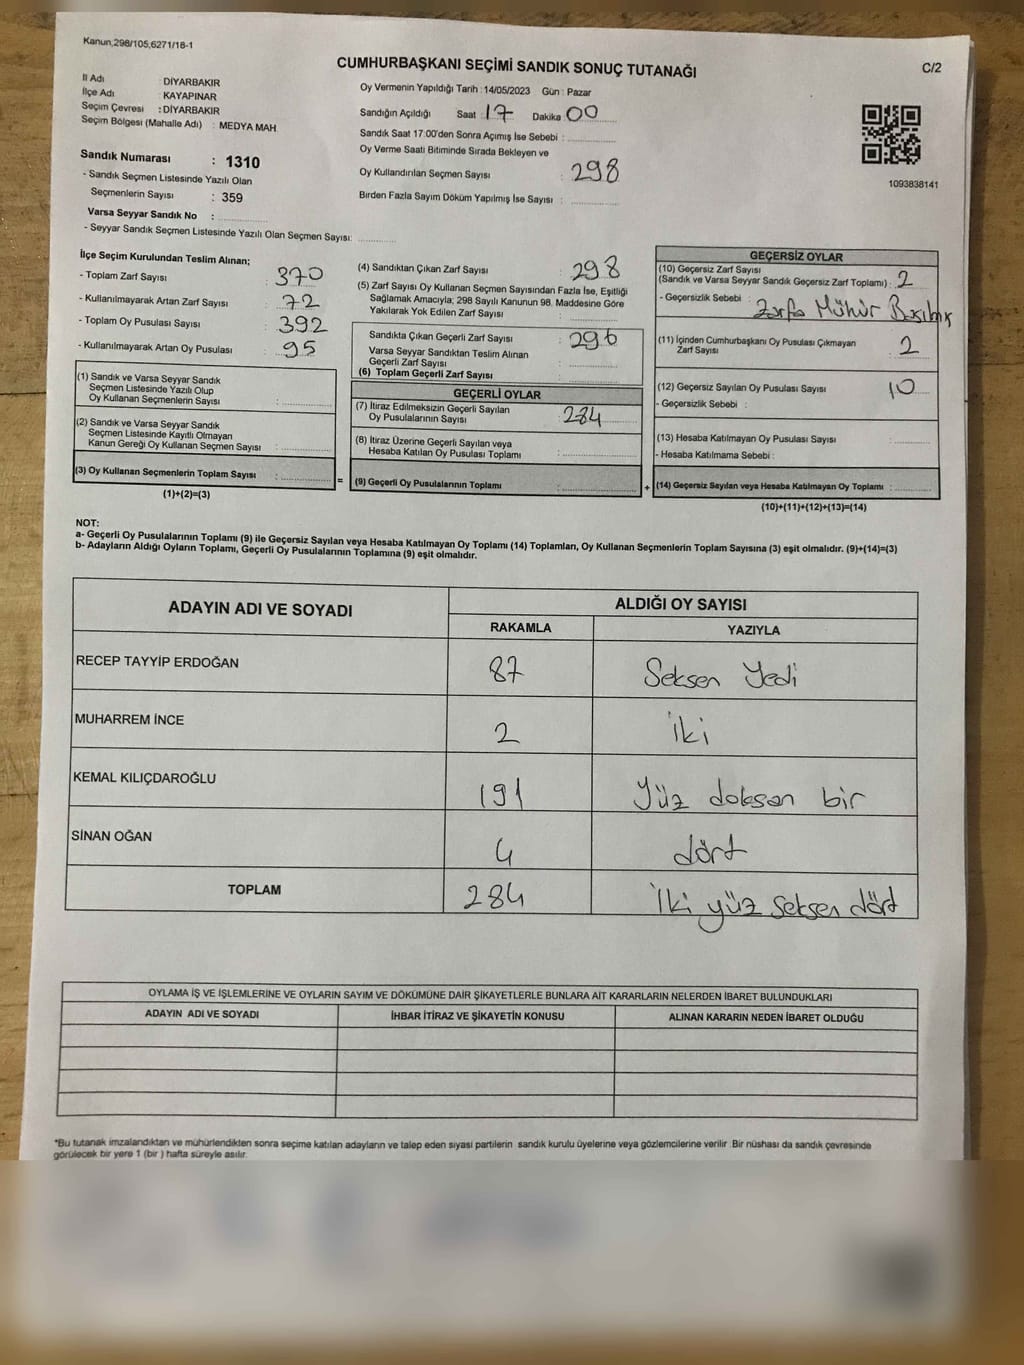 Kanun,298/105,6271/18-1
CUMHURBAŞKANI SEÇİMİ SANDIK SONUÇ TUTANAĞI
C/2
İl Adı : DİYARBAKIR
İlçe Adı : KAYAPINAR
Seçim Çevresi : DİYARBAKIR
Seçim Bölgesi (Mahalle Adı) : MEDYA MAH.
Sandık Numarası : 1310
- Sandık Seçmen Listesinde Yazılı Olan
Seçmenlerin Sayısı : 359
Varsa Seyyar Sandık No :
- Seyyar Sandık Seçmen Listesinde Yazılı Olan Seçmen Sayısı:
Oy Vermenin Yapıldığı Tarih : 14/05/2023 Gün : Pazar
Sandığın Açıldığı Saat : 17 Dakika 00
Sandık Saat 17:00'den Sonra Açımış İse Sebebi :
Oy Verme Saati Bitiminde Sırada Bekleyen ve
Oy Kullandırılan Seçmen Sayısı : 298
Birden Fazla Sayım Döküm Yapılmış İse Sayısı :
1093838141
İlçe Seçim Kurulundan Teslim Alınan;
- Toplam Zarf Sayısı : 370
- Kullanılmayarak Artan Zarf Sayısı : 72
- Toplam Oy Pusulası Sayısı : 392
- Kullanılmayarak Artan Oy Pusulası : 95
(1) Sandık ve Varsa Seyyar Sandık
Seçmen Listesinde Yazılı Olup
Oy Kullanan Seçmenlerin Sayısı :
(2) Sandık ve Varsa Seyyar Sandık
Seçmen Listesinde Kayıtlı Olmayan
Kanun Gereği Oy Kullanan Seçmen Sayısı :
(3) Oy Kullanan Seçmenlerin Toplam Sayısı :
(1)+(2)=(3)
(4) Sandıktan Çıkan Zarf Sayısı : 298
(5) Zarf Sayısı Oy Kullanan Seçmen Sayısından Fazla İse, Eşitliği
Sağlamak Amacıyla; 298 Sayılı Kanunun 98. Maddesine Göre
Yakılarak Yok Edilen Zarf Sayısı :
Sandıkta Çıkan Geçerli Zarf Sayısı : 296
Varsa Seyyar Sandıktan Teslim Alınan
Geçerli Zarf Sayısı :
(6) Toplam Geçerli Zarf Sayısı :
GEÇERLİ OYLAR
(7) İtiraz Edilmeksizin Geçerli Sayılan
Oy Pusulalarının Sayısı : 284
(8) İtiraz Üzerine Geçerli Sayılan veya
Hesaba Katılan Oy Pusulası Toplamı :
= (9) Geçerli Oy Pusulalarının Toplamı :
GEÇERSİZ OYLAR
(10) Geçersiz Zarf Sayısı
(Sandık ve Varsa Seyyar Sandık Geçersiz Zarf Toplamı) : 2
- Geçersizlik Sebebi : Zarfa Mühür
(11) İçinden Cumhurbaşkanı Oy Pusulası Çıkmayan
Zarf Sayısı : 2
(12) Geçersiz Sayılan Oy Pusulası Sayısı : 10
- Geçersizlik Sebebi :
(13) Hesaba Katılmayan Oy Pusulası Sayısı :
- Hesaba Katılmama Sebebi :
+ (14) Geçersiz Sayılan veya Hesaba Katılmayan Oy Toplamı :
(10)+(11)+(12)+(13)=(14)
NOT:
a- Geçerli Oy Pusulalarının Toplamı (9) ile Geçersiz Sayılan veya Hesaba Katılmayan Oy Toplamı (14) Toplamları, Oy Kullanan Seçmenlerin Toplam Sayısına (3) eşit olmalıdır. (9)+(14)=(3)
b- Adayların Aldığı Oyların Toplamı, Geçerli Oy Pusulalarının Toplamına (9) eşit olmalıdır.
ADAYIN ADI VE SOYADI
ALDIĞI OY SAYISI
RAKAMLA YAZIYLA
RECEP TAYYİP ERDOĞAN 87 Seksen Yedi
MUHARREM İNCE 2 iki
KEMAL KILIÇDAROĞLU 191 Yüz doksan bir
SİNAN OĞAN 4 dört
TOPLAM 284 İki yüz seksen dört
OYLAMA İŞ VE İŞLEMLERİNE VE OYLARIN SAYIM VE DÖKÜMÜNE DAİR ŞİKAYETLERLE BUNLARA AİT KARARLARIN NELERDEN İBARET BULUNDUKLARI
ADAYIN ADI VE SOYADI İHBAR İTİRAZ VE ŞİKAYETİN KONUSU ALINAN KARARIN NEDEN İBARET OLDUĞU
*Bu tutanak imzalandıktan ve mühürlendikten sonra seçime katılan adayların ve talep eden siyasi partilerin sandık kurulu üyelerine veya gözlemcilerine verilir. Bir nüshası da sandık çevresinde
görülecek bir yere 1 (bir ) hafta süreyle asılır.